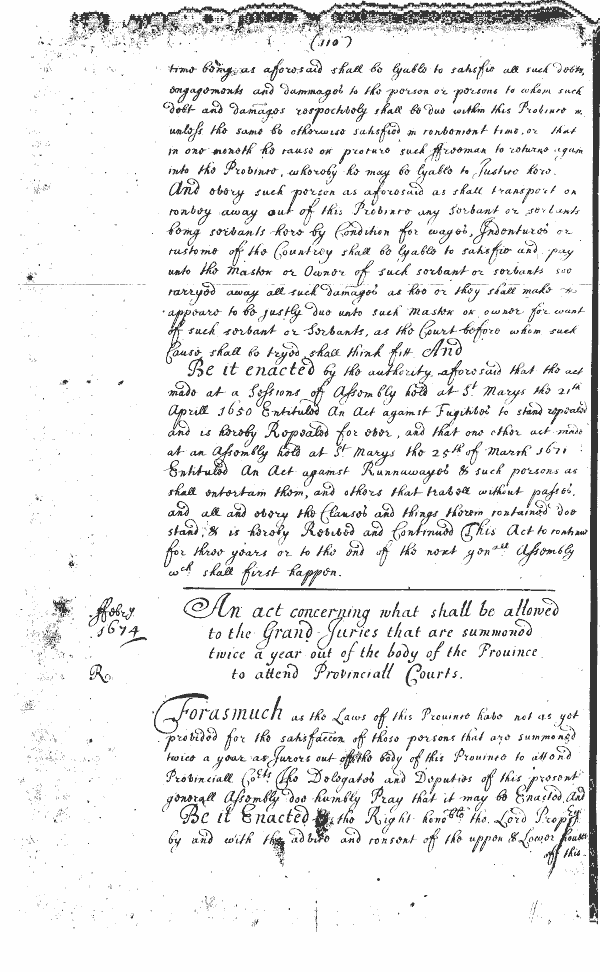 (110)
time being, as aforesaid shall be lyable to satisfie all such debts,
engagements and dammages to the person or persons to whom such
debt and damages respectively shall be due within this Province
unless the same be otherwise satisfied in convenient time, or that
in one moneth he cause or procure such ffreeman to returne again
into the Province, whereby he may be lyable to Justice here.
And every such person as aforesaid as shall transport or
convey away out of this Province any servant or servants
being servants here by Condition for wages, Indentures or
custome of the Countrey shall be lyable to satisfie and pay
unto the Master or Owner of such servant or servants soe
carryed away all such damages as hee or they shall make to
appeare to be justly due unto such Master or owner for want
of such servant or Servants, as the Court before whom such
Cause shall be tryed shall think fitt And
Be it enacted by the authority aforesaid that the act
made at a Sessions of Assembly held at St Marys the 21th
Aprill 1650 Entituled An Act against Fugitives to stand repealed
and is hereby Repealed for ever, and that one other act made
at an Assembly held at St Marys the 25th of March 1671
Entituled An Act against Runnawayes & such persons as
shall entertain them, and others that travell without passes,
and all and every the Clauses and things therein contained doe
stand, & is hereby Revived and Continued This Act to continue
for three years or to the end of the next genall Assembly
wch shall first happen.
ffebry
1674
R
An act concerning what shall be allowed
to the Grand Juries that are summoned
twice a year out of the body of the Province
to attend Provinciall Courts.
Forasmuch as the Laws of this Province have not as yet
provided for the satisfaccon of those persons that are summoned
twice a year as Jurors out of the body of this Province to attend
Provinciall Cots The Delegates and Deputies of this present
generall Assembly doe humbly Pray that it may be Enacted And
Be it Enacted the Right honoble the Lord Propry
by and with the advice and consent of the upper & Lower houses
of this